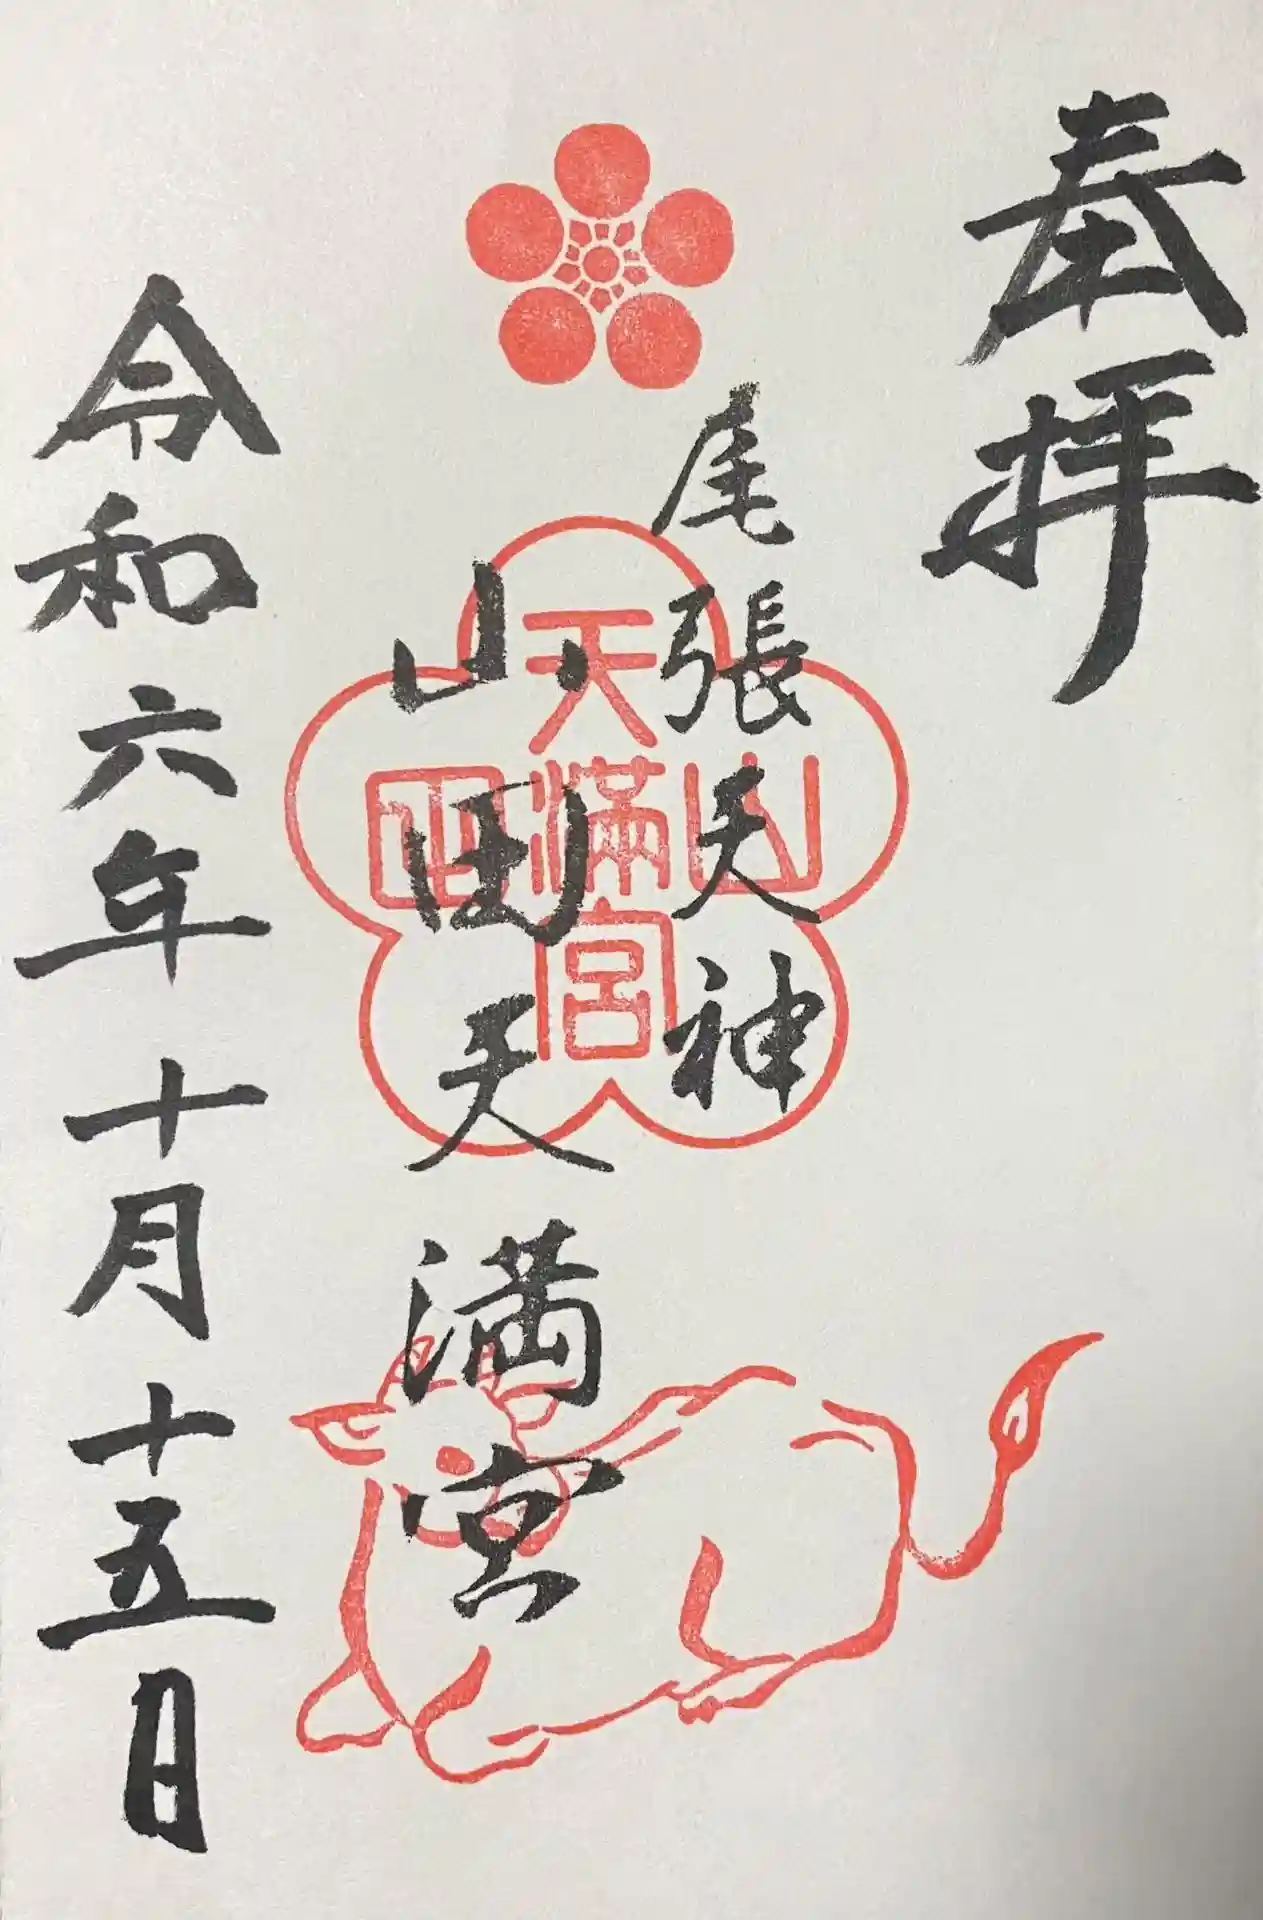 奉拝
尾張天神
山田天満宮
山田天満宮
令和六年十月十五日